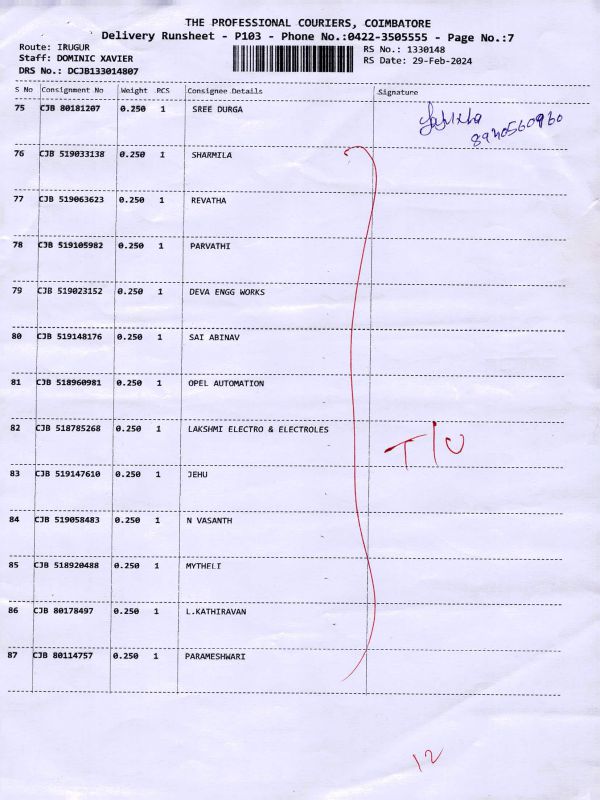 THE PROFESSIONAL COURIERS, COIMBATORE
Delivery Runsheet - P103 - Phone No.:0422-3505555 - Page No.:7
Route: IRUGUR RS No.: 1330148
Staff: DOMINIC XAVIER RS Date: 29-Feb-2024
DRS No.: DCJB133014807
S No Consignment No Weight PCS Consignee Details Signature
75 CJB 80181207 0.250 1 SREE DURGA
8940560960
76 CJB 519033138 0.250 1 SHARMILA
77 CJB 519063623 0.250 1 REVATHA
78 CJB 519105982 0.250 1 PARVATHI
79 CJB 519023152 0.250 1 DEVA ENGG WORKS
80 CJB 519148176 0.250 1 SAI ABINAV
81 CJB 518960981 0.250 1 OPEL AUTOMATION
82 CJB 518785268 0.250 1 LAKSHMI ELECTRO & ELECTROLES
T/U
83 CJB 519147610 0.250 1 JEHU
84 CJB 519058483 0.250 1 N VASANTH
85 CJB 518920488 0.250 1 MYTHELI
86 CJB 80178497 0.250 1 L.KATHIRAVAN
87 CJB 80114757 0.250 1 PARAMESHWARI
12